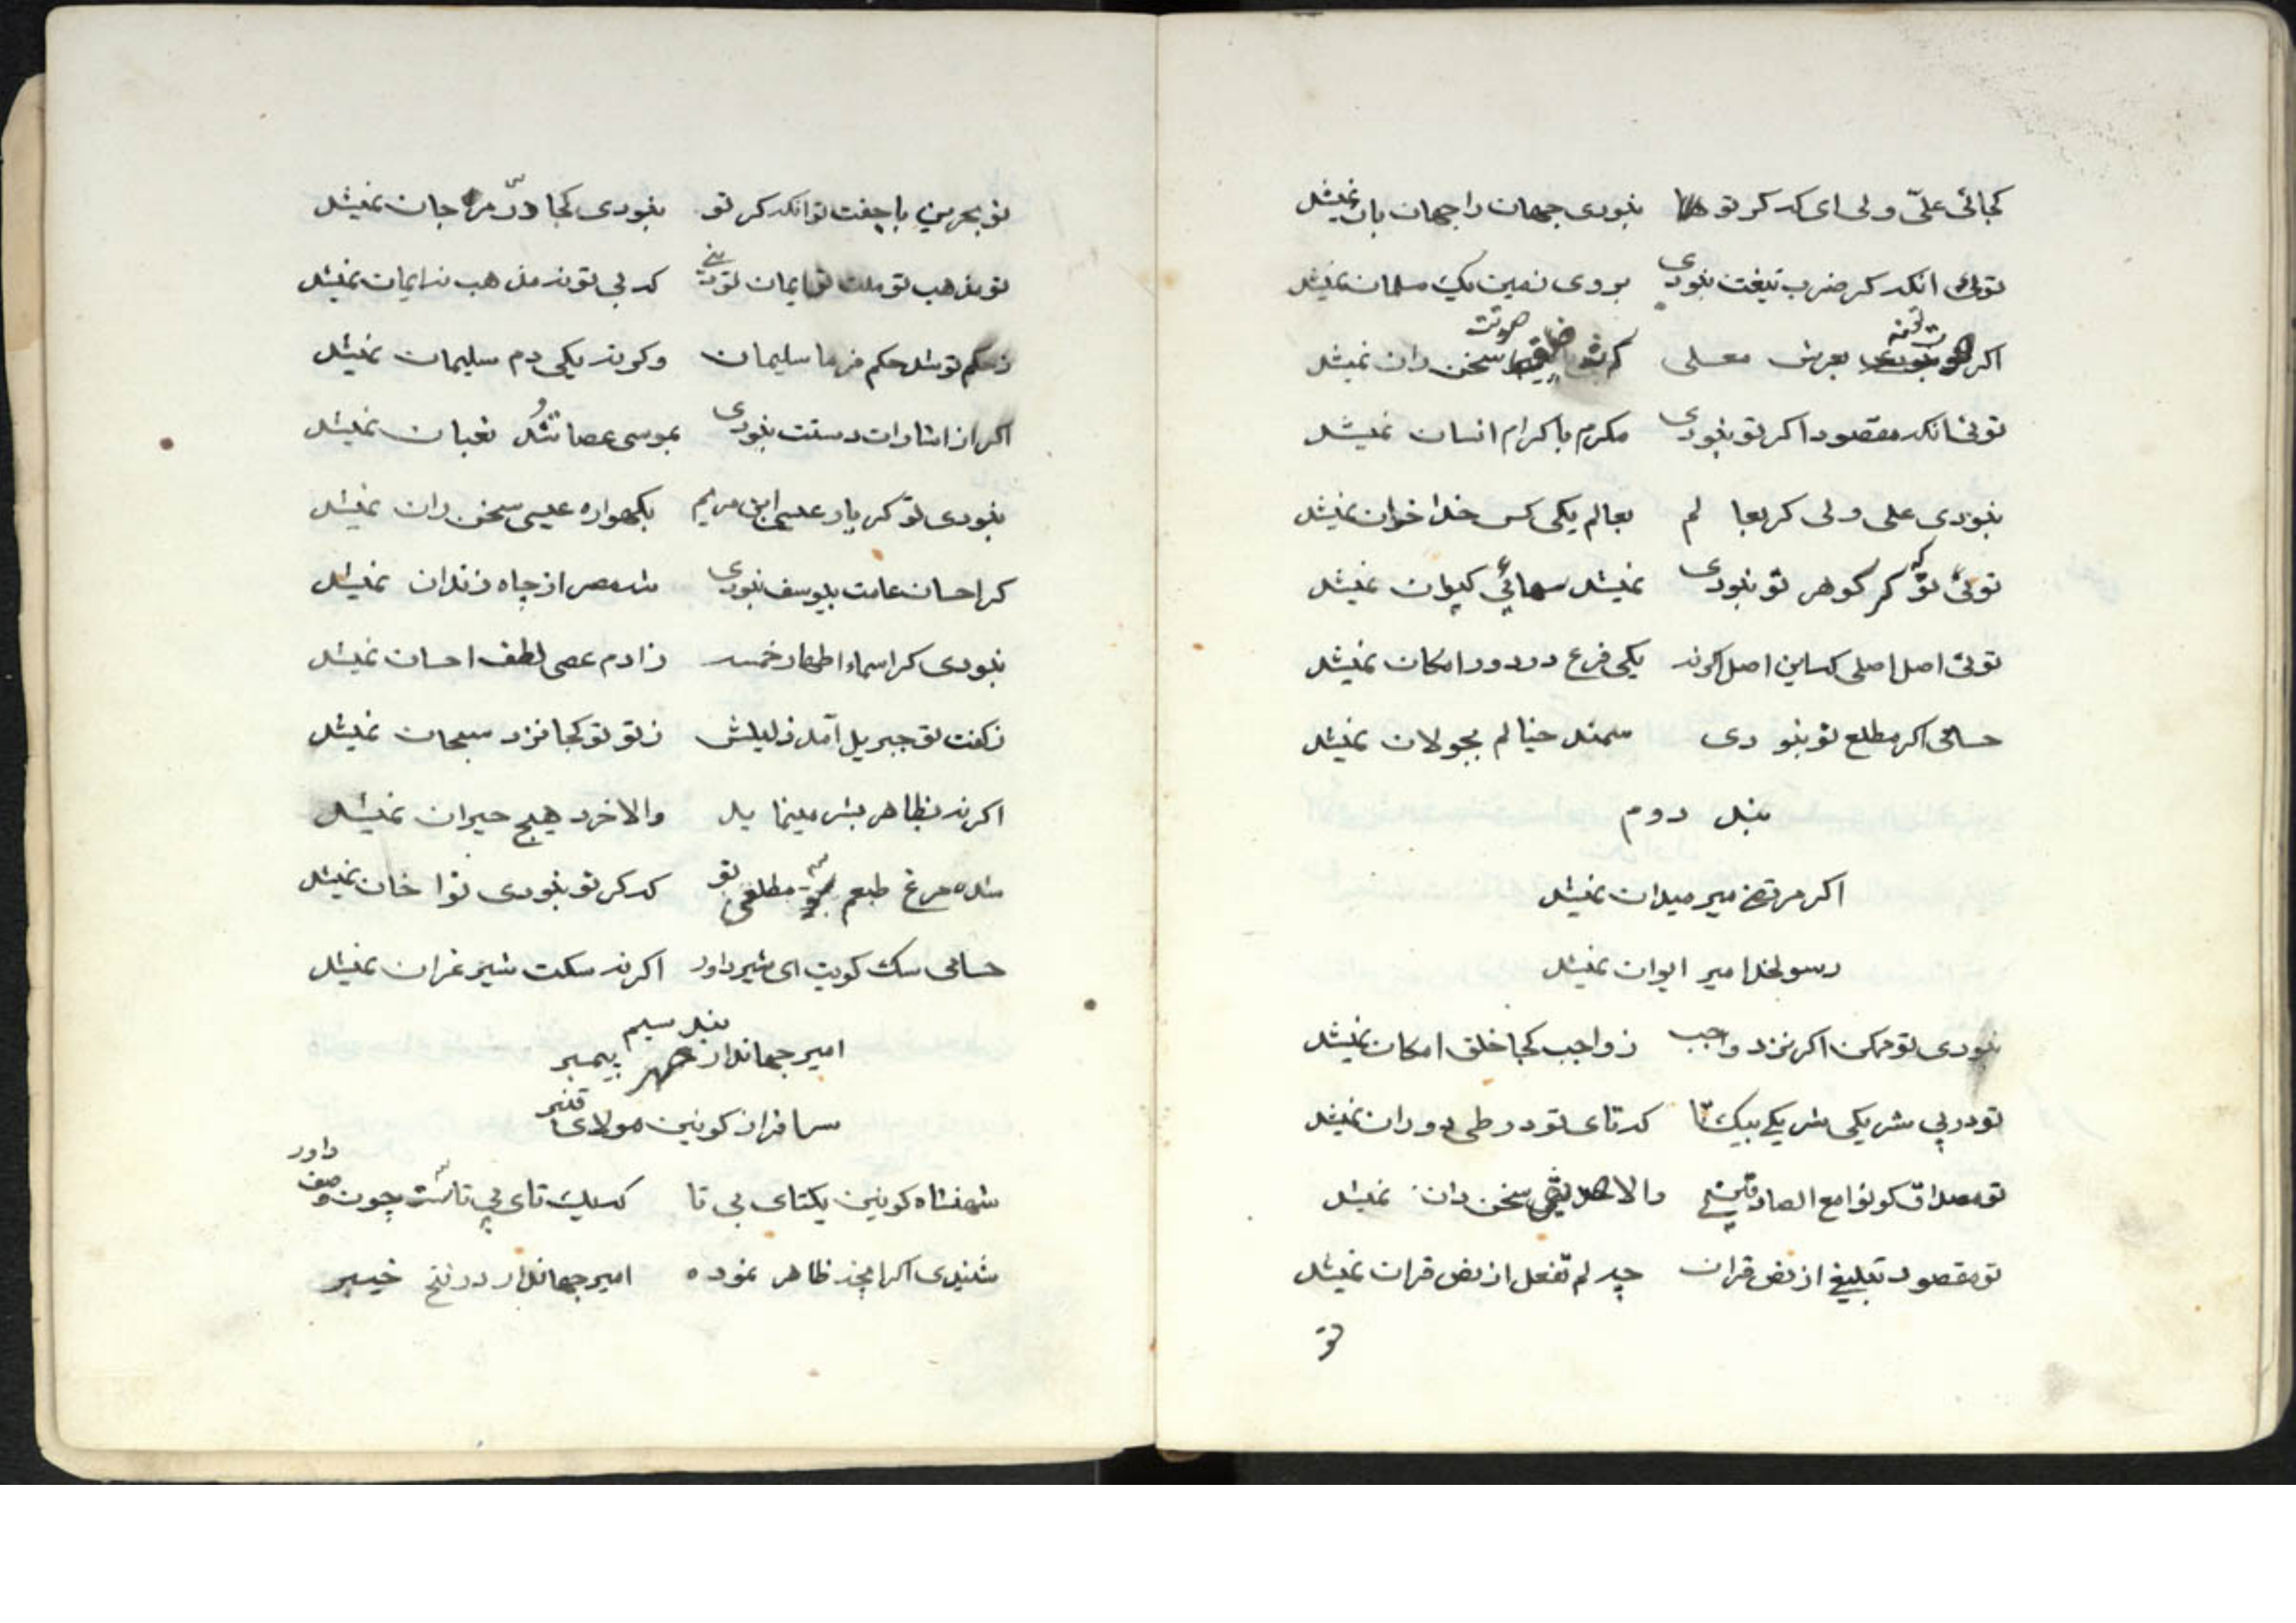 کجائی علیّ ولی ای که کر تو نبودی جهان را جهان بان نمیشد
توئی انکه کر ضرب تیغت نبودی بروی زمین یک مسلمان نمیشد
اکر بعرش معلی سخن دان نمیشد
توئی انکه مقصود اکر تو نبودی مکرم باکرام انسان نمیشد
نبودی علی ولی کر بعالم بعالم یکی کس خدا خوان نمیشد
توئی تو که کر کوهر تو نبودی نمیشد سهائی کیوان نمیشد
توئی اصل اصلی که این اصل اکر نه یکی فرع در دور امکان نمیشد
حسامی اکر مطلع تو نبودی سمند خیالم بجولان نمیشد
بند دوم
اکر مرتضی میر میدان نمیشد
رسولخدا میر ایوان نمیشد
نبودی تو ممکن اکر نزد واجب ز واجب کجا خلق امکان نمیشد
تو در بی شریکی شریکی بیکتا که تای تو در طی دوران نمیشد
تو مصداق کونوا مع الصادقینی والا سخن دان نمیشد
تو مقصود تبلیغ از نص قران چه لم تفعل از نص قران نمیشد
تو
تو بحرین با جفت تو انکه کر تو نبودی کجا درّ مرجان نمیشد
تو مذهب تو ملت تو ایمان تو دینی که بی تو نه مذهب نه ایمان نمیشد
ز حکم تو شد حکم فرما سلیمان وکرنه یکی دم سلیمان نمیشد
اکر از اشارات دستت نبودی بموسی عصا ثعبان نمیشد
نبودی تو کر یار عیسی ابن مریم بکهواره عیسی سخن ران نمیشد
کر احسان عامت بیوسف نبودی شه مصر از چاه زندان نمیشد
نبودی کر اسماء اطهار خمسه ز ادم عصی لطف احسان نمیشد
ز کفت تو جبریل آمد ذلیلش ز تو تو کجا نزد سبحان نمیشد
اکر نه بظاهر بشر مینماید والا خرد هیچ حیران نمیشد
شده مرغ طبعم مطلعی تو که کر تو نبودی نوا خان نمیشد
حسامی سک کویت ای شیر داور اکر نه سکت شیر غران نمیشد
بند سیم
امیر جهاندار صهر پیمبر
سرافراز کونین مولای قنبر
شهنشاه کونین یکتای بی تا که یک تای بی تاست چون وصف داور
شنیدی اکر انچه ظاهر نموده امیر جهاندار در فتح خیبر